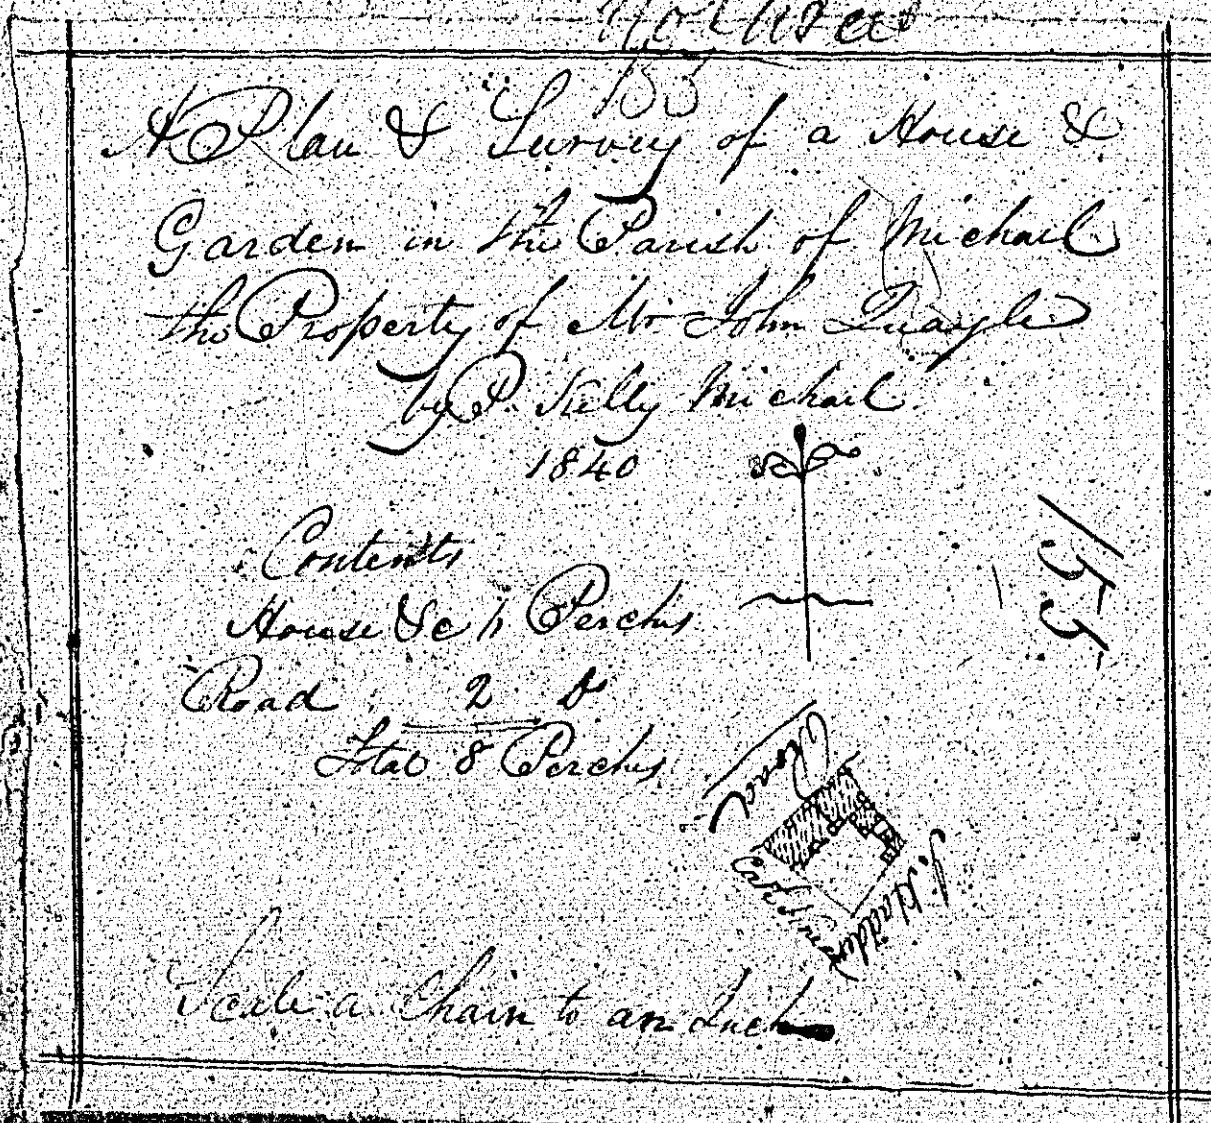 No
155
A Plan & Survey of a House &
Garden in the Parish of Michael
the Property of Mr John Quayle
by P. Kelly Michael
1840
Contents
House &c Perches
Road 2 Do
Total 8 Perches
155
Road
J. Hadden
Scale a Chain to an Inch